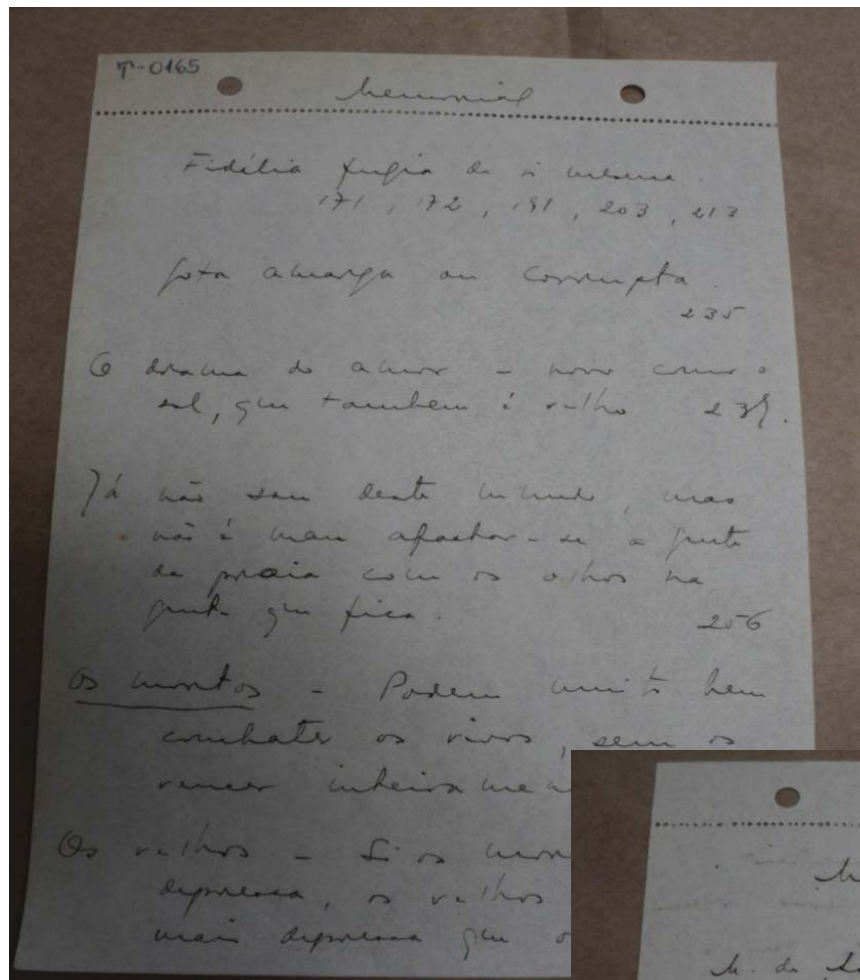 T-0165
Memorial
Fidélia fugia de si mesma.
171, 172, 191, 203, 213
Gota amarga ou corrupta.
235
O drama do amor – novo como o
sol, que tambem é velho 239.
Já não sou deste mundo, mas
não é mau afastar-se a gente
da praia com os olhos na
gente que fica. 256
Os mortos – Podem muito bem
combater os vivos, sem os
vencer inteirame
Os velhos – Si os mor
depressa, os velhos
mais depressa que o
M. de